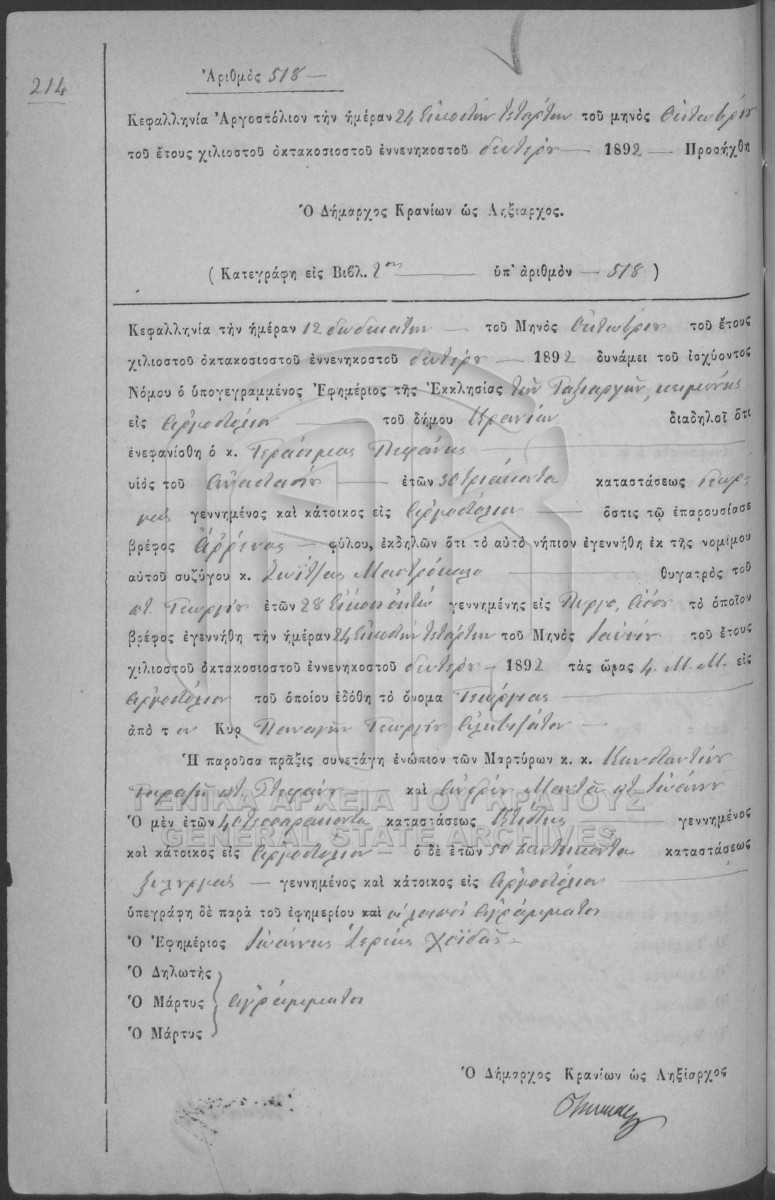 214
Ἀριθμὸς 518 —
Κεφαλληνία Ἀργοστόλιον τὴν ἡμέραν 24 Εἰκοστὴν τετάρτην τοῦ μηνὸς Ὀκτωβρίου
τοῦ ἔτους χιλιοστοῦ ὀκτακοσιοστοῦ ἐννενηκοστοῦ δευτέρου — 1892 — Προσήχθη
Ὁ Δήμαρχος Κρανίων ὡς Ληξίαρχος.
( Κατεγράφη εἰς Βιβλ. 2ον — ὑπ' ἀριθμὸν — 518 )
Κεφαλληνία τὴν ἡμέραν 12 δωδεκάτην — τοῦ Μηνὸς Ὀκτωβρίου τοῦ ἔτους
χιλιοστοῦ ὀκτακοσιοστοῦ ἐννενηκοστοῦ δευτέρου — 1892 δυνάμει τοῦ ἰσχύοντος
Νόμου ὁ ὑπογεγραμμένος Ἐφημέριος τῆς Ἐκκλησίας τῶν Ταξιαρχῶν, κειμένης
εἰς Ἀργοστόλιον — τοῦ δήμου Κρανίων διαδηλοῖ ὅτι
ἐνεφανίσθη ὁ κ. Γεράσιμος —
υἱὸς τοῦ Ἀναστασίου — ἐτῶν 30 τριάκοντα καταστάσεως γεωρ-
γὸς γεννημένος καὶ κάτοικος εἰς Ἀργοστόλιον — ὅστις τῷ ἐπαρουσίασε
βρέφος ἄρρενος — φύλου, ἐκδηλῶν ὅτι τὸ αὐτὸ νήπιον ἐγεννήθη ἐκ τῆς νομίμου
αὐτοῦ συζύγου κ. — θυγατρὸς τοῦ
ποτ. Γεωργίου ἐτῶν 28 Εἰκοσιοκτὼ γεννημένης εἰς τὸ ὁποῖον
βρέφος ἐγεννήθη τὴν ἡμέραν 24 Εἰκοστὴν τετάρτην τοῦ Μηνὸς Ἰουνίου τοῦ ἔτους
χιλιοστοῦ ὀκτακοσιοστοῦ ἐννενηκοστοῦ δευτέρου — 1892 τὰς ὥρας 4. Μ.Μ. εἰς
Ἀργοστόλιον τοῦ ὁποίου ἐδόθη τὸ ὄνομα Γεώργιος —
ἀπὸ τὸν Κύρ Παναγῆν Γεωργίου —
Ἡ παροῦσα πρᾶξις συνετάγη ἐνώπιον τῶν Μαρτύρων κ. κ. Κωνσταντίνου
— καὶ Ἀνδρέου Μαντᾶ ποτ. Ἰωάννου
ΓΕΝΙΚΑ ΑΡΧΕΙΑ ΤΟΥ ΚΡΑΤΟΥΣ
Ὁ μὲν ἐτῶν 40 τεσσαράκοντα καταστάσεως κτίστης — γεννημένος
GENERAL STATE ARCHIVES
καὶ κάτοικος εἰς Ἀργοστόλιον — ὁ δὲ ἐτῶν 50 πεντήκοντα καταστάσεως
ξυλουργὸς — γεννημένος καὶ κάτοικος εἰς Ἀργοστόλιον —
ὑπεγράφη δὲ παρὰ τοῦ ἐφημερίου καὶ οἱ λοιποὶ ἀγράμματοι
Ὁ Ἐφημέριος Ἰωάννης Ἱερεὺς Χοϊδᾶς —
Ὁ Δηλωτὴς
Ὁ Μάρτυς ἀγράμματοι
Ὁ Μάρτυς
Ὁ Δήμαρχος Κρανίων ὡς Ληξίαρχος